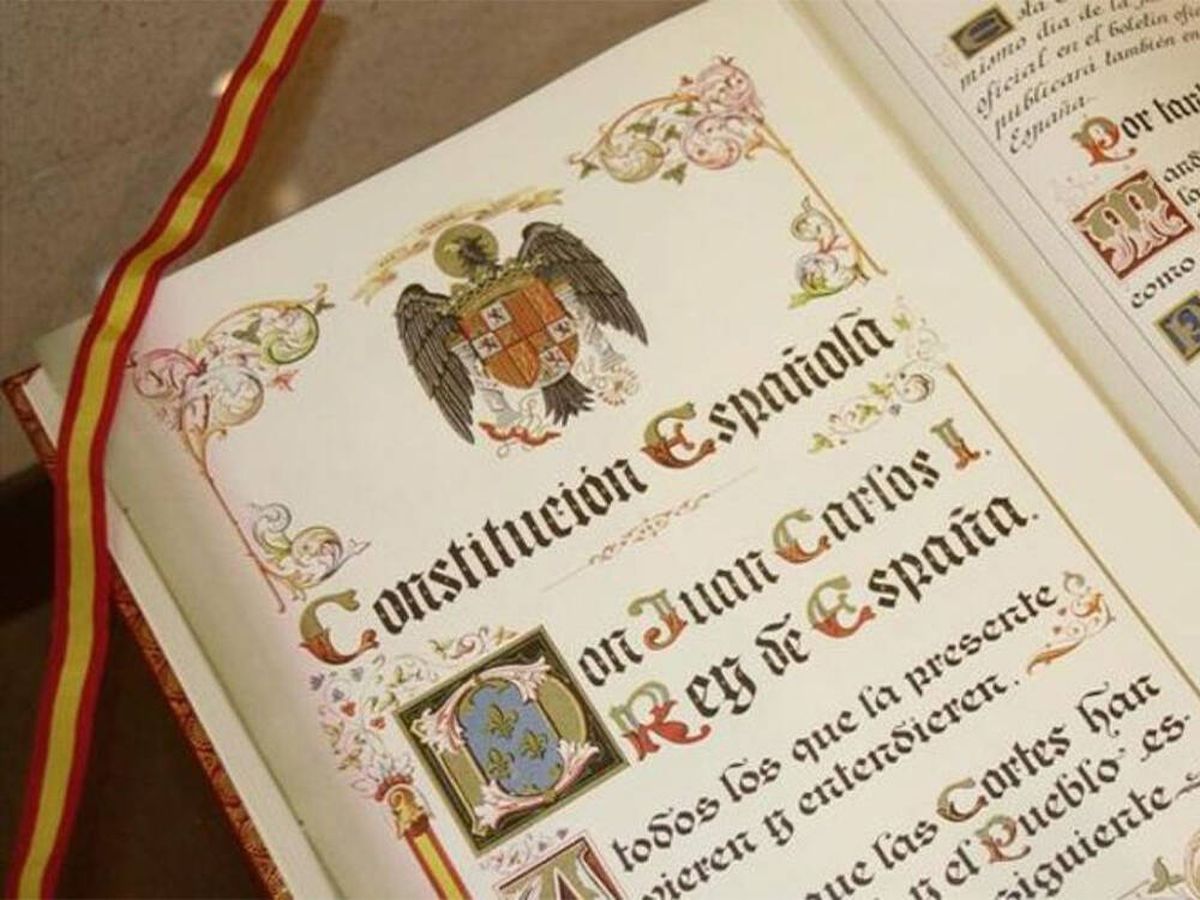 Constitución Española
Don Juan Carlos I.
Rey de España.
todos los que la presente
vieren y entendieren.
que las Cortes han
y el Pueblo es-
siguiente
mismo día de la
oficial en el boletín
publicará también en
España.
Por
como